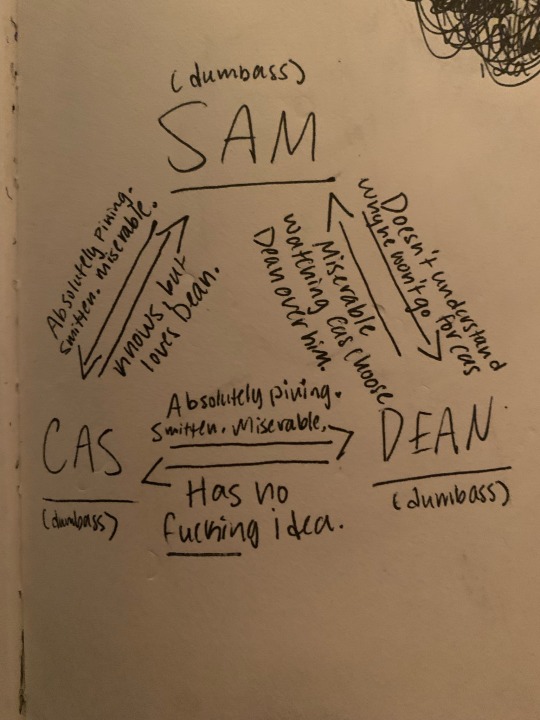 idea
(dumbass)
SAM
Absolutely pining.
Smitten. Miserable.
knows but
loves Dean.
Doesn't understand
why he won't go for cas
Miserable
watching cas choose
Dean over him.
Absolutely pining.
Smitten. Miserable.
CAS
(dumbass)
DEAN
(dumbass)
Has no
fucking idea.